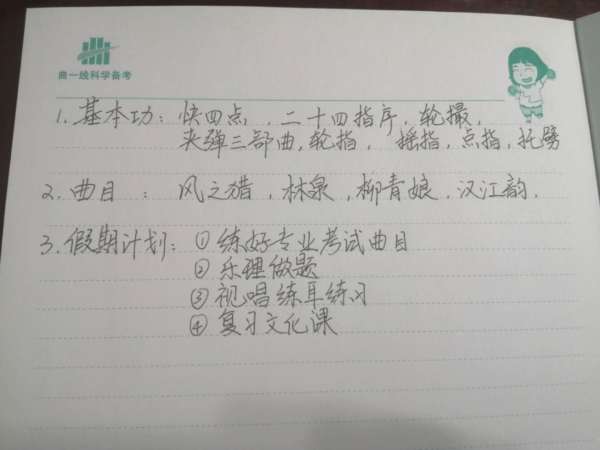 曲一线科学备考
1. 基本功：快四点，二十四指序，轮撮，
夹弹三部曲，轮指，摇指，点指，托劈
2. 曲目：风之猎，林泉，柳青娘，汉江韵．
3. 假期计划：①练好专业考试曲目
②乐理做题
③视唱练耳练习
④复习文化课